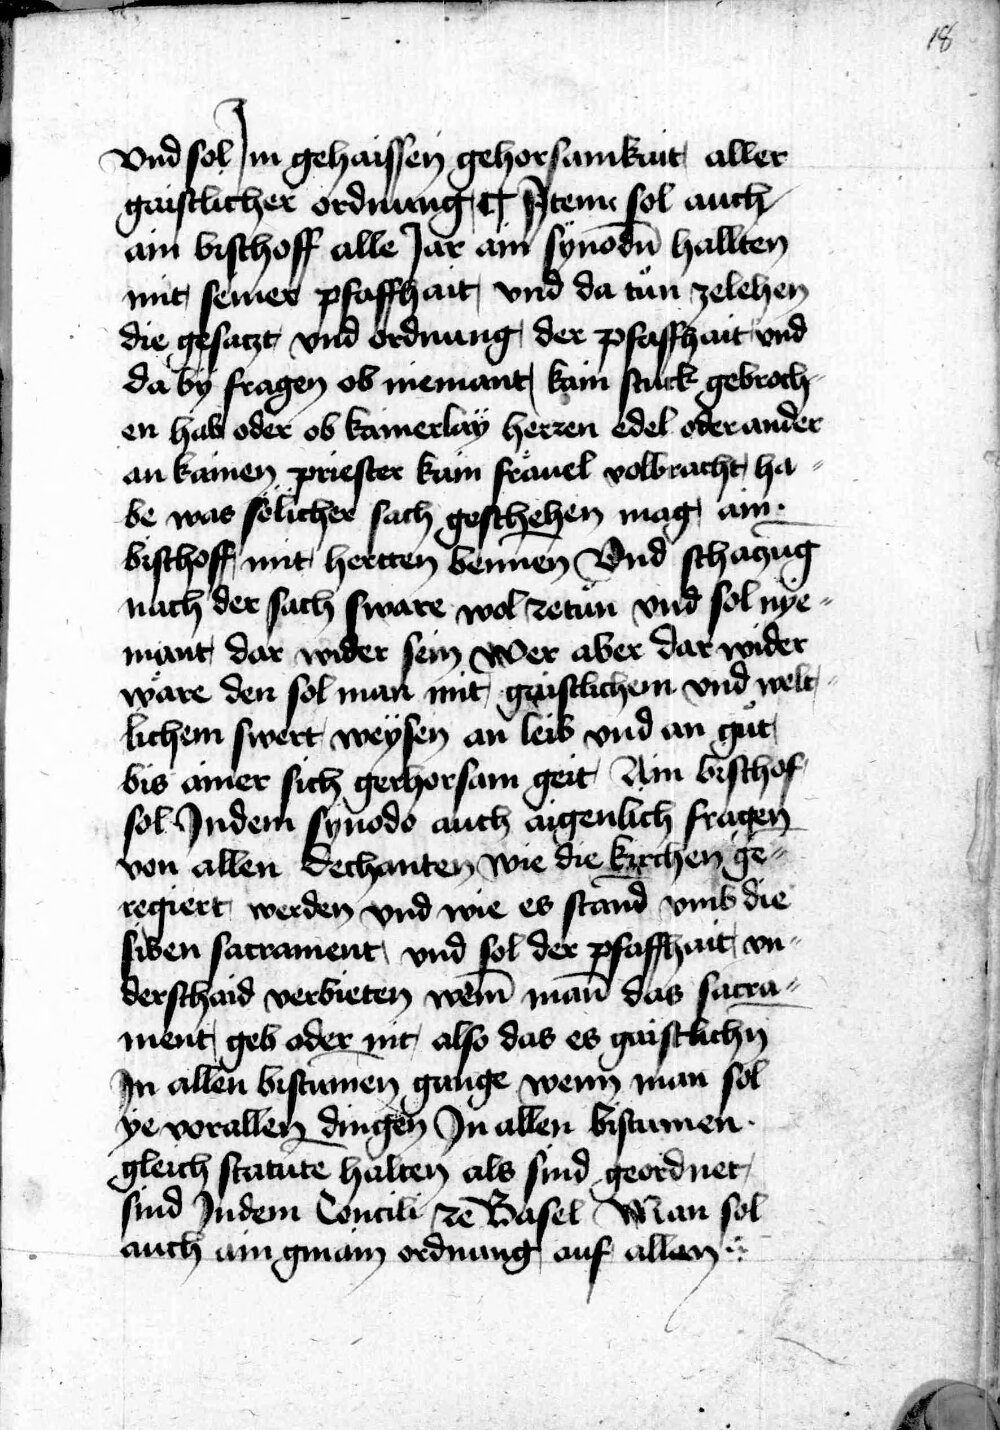 18
vnd sol Jm gehaissen gehorsamkait aller
gaistlicher ordnung ¶ Item sol auch
ain bischoff alle Jar ain synodū hallten
mit seiner pfaffhait vnd da tůn zelehen
die gesatzt vnd ordnung der pfaffhait vnd
da by fragen ob niemant kain stuck gebroch-
en hab oder ob kainerlaÿ herren edel oder ander
an kainen priester kain fräuel volbracht ha-
be was sölicher sach geschehen mag ain
bischoff mit hertten bennen Vnd schatzūg
nach der sach sware wol zetůn vnd sol nye-
mant dar wider sein Wer aber dar wider
wäre den sol man mit gaistlichem vnd welt-
lichem swert weÿsen an leib vnd an gůt
bis ainer sich gerhorsam geit Ain bischof
sol Jndem synodo auch aigenlich fragen
von allen dechanten wie die kirchen ge-
regiert werden vnd wie es stand vmb die
siben sacrament vnd sol der pfaffhait vn-
derschaid verbieten wem̄ man̄ das sacra-
ment geb oder nit also das es gaistlichn
Jn allen bistumen gange wenn man sol
ye vorallen dingen Jn allen bistumen
gleich statute halten als sind geordnet
sind Jndem Concili zē Basel Man sol
auch ain gmain ordnung auf allen